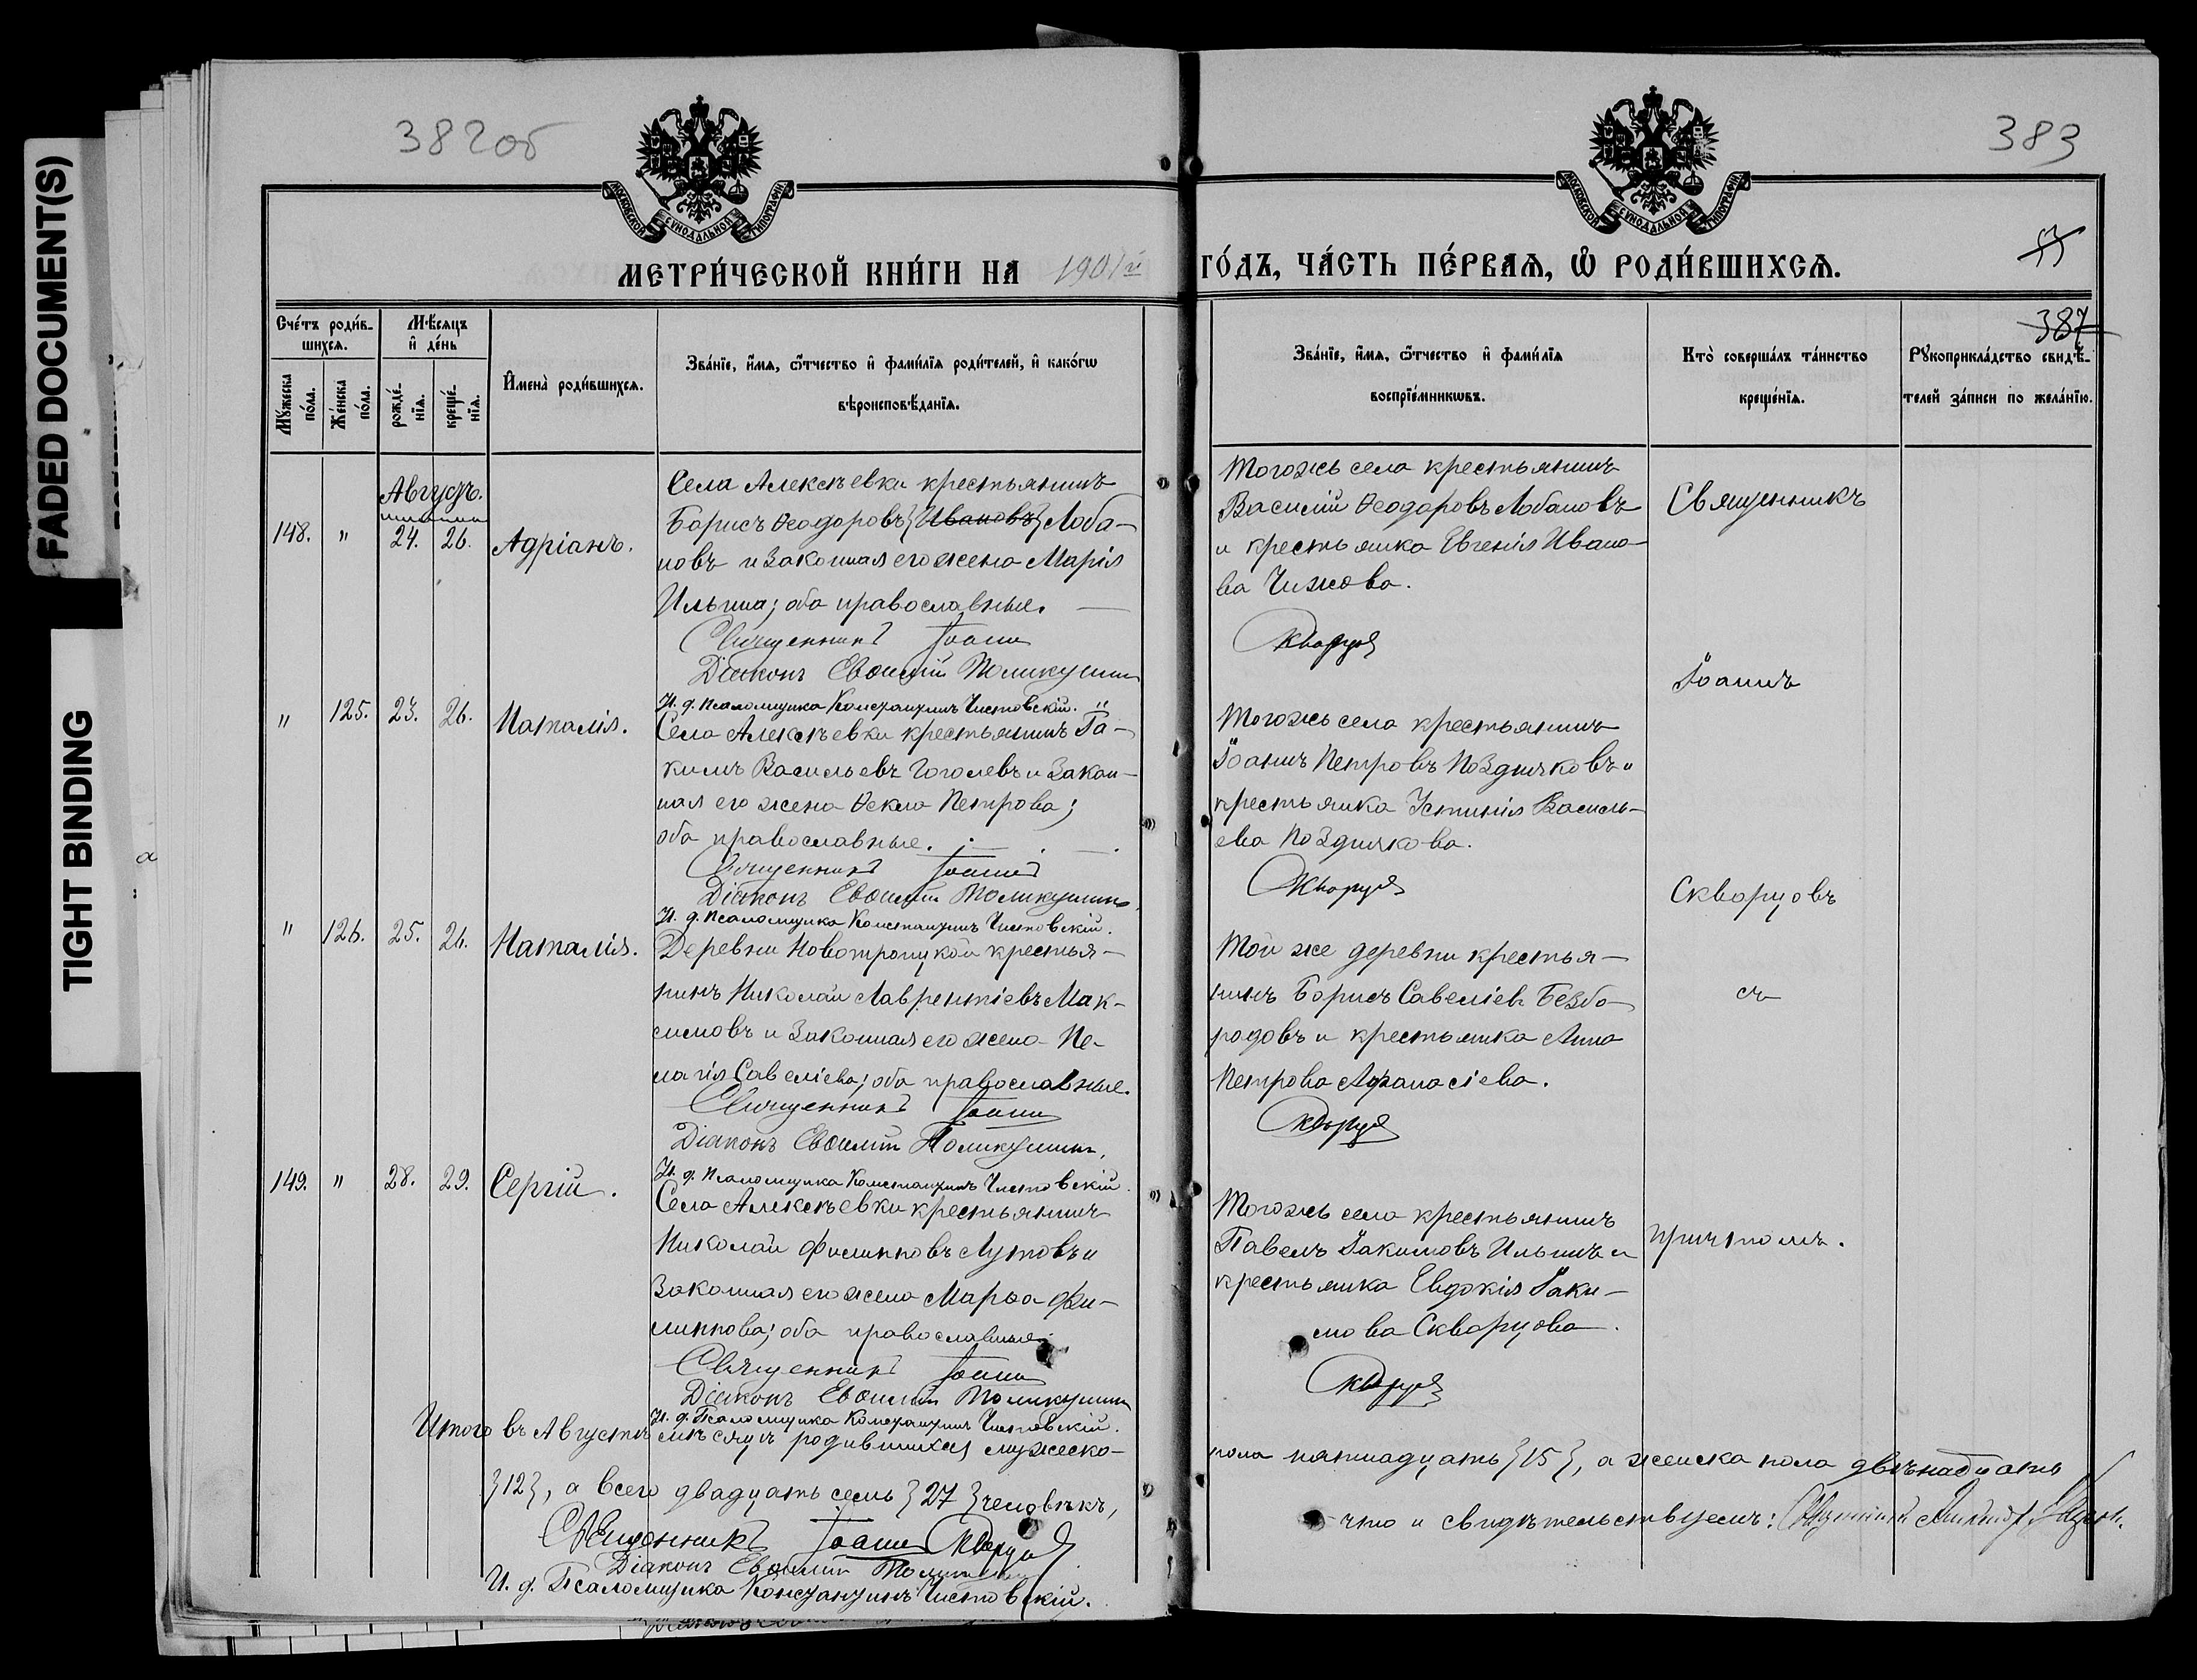 FADED DOCUMENT(S)
TIGHT BINDING
382об
383
МОСКОВСКОЙ СѴНОДАЛЬНОЙ ТИПОГРАФІИ
МОСКОВСКОЙ СѴНОДАЛЬНОЙ ТИПОГРАФІИ
МЕТРИ́ЧЕСКОЙ КНИ́ГИ НА 1901й ГО́ДЪ, ЧА́СТЬ ПЕ́РВАѦ, Ѽ РОДИ́ВШИХСѦ.
387
Сче́тъ роди́в-
шихсѧ.
Мꙋ́жеска
по́ла.
Же́нска
по́ла.
Мѣ́сѧцъ
и҆ де́нь
рожде́-
нїѧ.
креще́-
нїѧ.
И҆мена̀ роди́вшихсѧ.
Зва́нїе, и҆́мѧ, ѻ҆́тчество и҆ фами́лїѧ роди́телей, и҆ како́гѡ
вѣроисповѣ́данїѧ.
Зва́нїе, и҆́мѧ, ѻ҆́тчество и҆ фами́лїѧ
воспрїе́мникѡвъ.
Кто̀ соверша́лъ та́инство
креще́нїѧ.
Рꙋкоприкла́дство свидѣ́-
телей за́писи по жела́нїю.
Августъ.
148. " 24. 26. Адріанъ.
Села Алексѣевки крестьянинъ
Борисъ Ѳеодоровъ{Ивановъ}Лоба-
новъ и законная его жена Марія
Ильина; оба православные.
Священникъ Іоаннъ
Діаконъ Евѳимій Поликушинъ
И. д. Псаломщика Константинъ Чистовскій.
Тогожь села крестьянинъ
Василій Ѳеодоровъ Лобановъ
и крестьянка Евгенія Ивано-
ва Чижова.
Скворцовъ
Священникъ
Іоаннъ
Скворцовъ
съ
причтомъ.
" 125. 23. 26. Наталія.
Села Алексѣевки крестьянинъ Іа-
кимъ Васильевъ Гоголевъ и закон-
ная его жена Ѳекла Петрова;
оба православные.
Священникъ Іоаннъ
Діаконъ Евѳимій Поликушинъ
И. д. Псаломщика Константинъ Чистовскій.
Тогожь села крестьянинъ
Іоаннъ Петровъ Поздняковъ и
крестьянка Устинія Василь-
ева Позднякова.
Скворцовъ
" 126. 25. 26. Наталія.
Деревни Новотроицкой крестья-
нинъ Николай Лаврентіевъ Мак-
симовъ и законная его жена Пе-
лагія Савеліева; оба православные.
Священникъ Іоаннъ
Діаконъ Евѳимій Поликушинъ
И. д. Псаломщика Константинъ Чистовскій.
Той же деревни крестья-
нинъ Борисъ Савеліевъ Безбо-
родовъ и крестьянка Анна
Петрова Афанасіева.
Скворцовъ
149. " 28. 29. Сергій.
Села Алексѣевки крестьянинъ
Николай Филипповъ Лутовъ и
законная его жена Марѳа Фи-
липпова; оба православные.
Священникъ Іоаннъ
Діаконъ Евѳимій Поликушинъ
И. д. Псаломщика Константинъ Чистовскій.
Тогожь села крестьянинъ
Павелъ Іакимовъ Ильинъ и
крестьянка Евдокія Іаки-
мова Скворцова.
Скворцовъ
Итого въ Августѣ мѣсяцѣ родившихся мужеско-
пола пятнадцать{15}, а женска пола двѣнадцать
{12}, а всего двадцать семь{27}человѣкъ,
что и свидѣтельствуемъ: Священникъ
Священникъ Іоаннъ Скворцовъ
Діаконъ Евѳимій Поликушинъ
И. д. Псаломщика Константинъ Чистовскій.